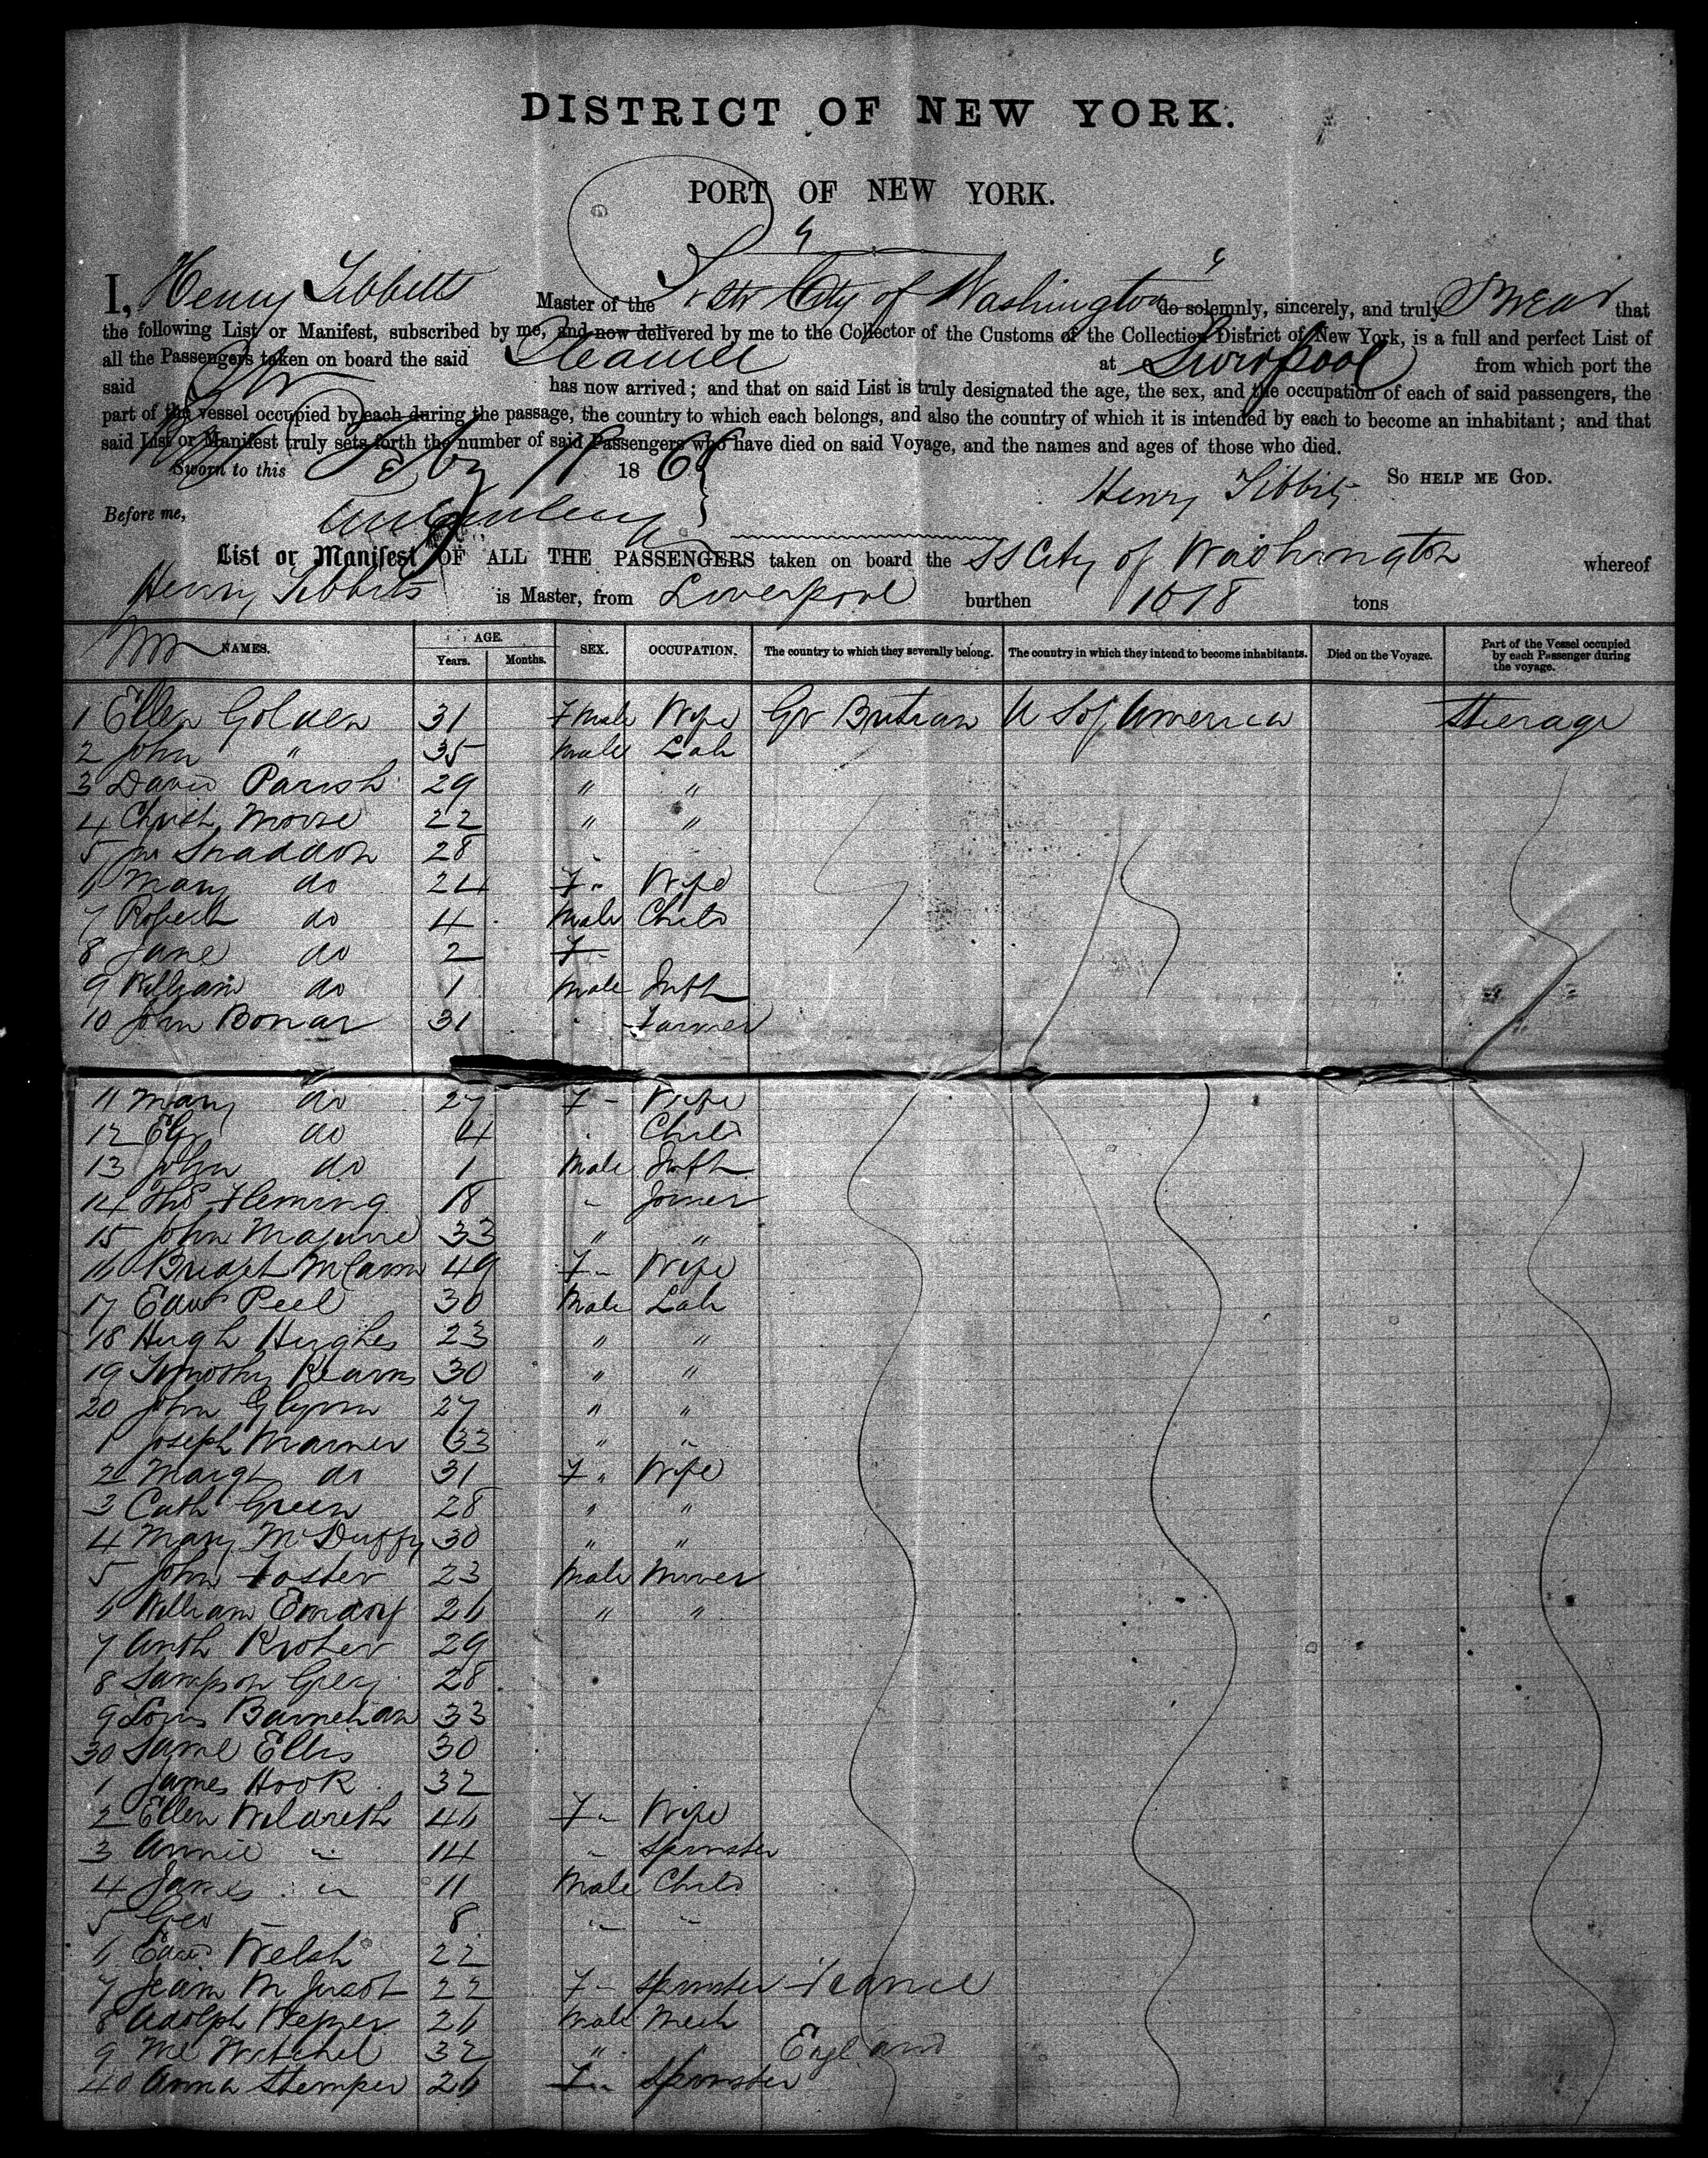 DISTRICT OF NEW YORK.
PORT OF NEW YORK.
I, Henry Tibbitts Master of the Str City of Washington do solemnly, sincerely, and truly Swear that
the following List or Manifest, subscribed by me, and now delivered by me to the Collector of the Customs of the Collection District of New York, is a full and perfect List of
all the Passengers taken on board the said Steamer at Liverpool from which port the
said Str has now arrived; and that on said List is truly designated the age, the sex, and the occupation of each of said passengers, the
part of the vessel occupied by each during the passage, the country to which each belongs, and also the country of which it is intended by each to become an inhabitant; and that
said List or Manifest truly sets forth the number of said Passengers who have died on said Voyage, and the names and ages of those who died.
Sworn to this Feby 186 Henry Tibbits SO HELP ME GOD.
Before me,
List or Manifest OF ALL THE PASSENGERS taken on board the SS City of Washington whereof
Henry Tibbits is Master, from Liverpool burthen tons
NAMES. AGE. Years. Months. SEX. OCCUPATION. The country to which they severally belong. The country in which they intend to become inhabitants. Died on the Voyage. Part of the Vessel occupied by each Passenger during the voyage.
1 Ellen Golden 31 F Male Wife Gr Britian U S of America Steerage
2 John " 35 Male Lab
3 David Parish 29 " "
4 Christ. Morse 22 " "
5 Snaddon 28 "
6 Mary do 24 F " Wife
7 Robert do 4 Male Child
8 Jane do 2 F "
9 William do 1 Male Inft
10 John Bonar 31 " Farmer
11 Mary do 27 F " Wife
12 Eliz do 4 " Child
13 John do 1 Male Inft
14 Thos Fleming 18 " Joiner
15 John Maguire 33 " "
16 Bridget McCann 49 F " Wife
17 Edwd Peel 30 Male Lab
18 Hugh Hughes 23 " "
19 Timothy Kearns 30 " "
20 John Glynn 27 " "
1 Joseph Warner 33 " "
2 Margt do 31 F " Wife
3 Cath Green 28 " "
4 Mary McDuffy 30 " "
5 John Foster 23 Male Miner
6 William 26 " "
7 Anth 29
8 Sampson Grey 28
9 Louis 33
30 Saml Ellis 30
1 James Hook 32
2 Ellen 46 F " Wife
3 Annie " 14 " Spinster
4 James " 11 Male Child
5 Geo " 8 " "
6 Edwd Welsh 22
7 Jean M 22 F " Spinster France
8 Adolph 26 Male Mech
9 Wm Witchel 32 " England
40 Anna Stemper 26 F " Spinster